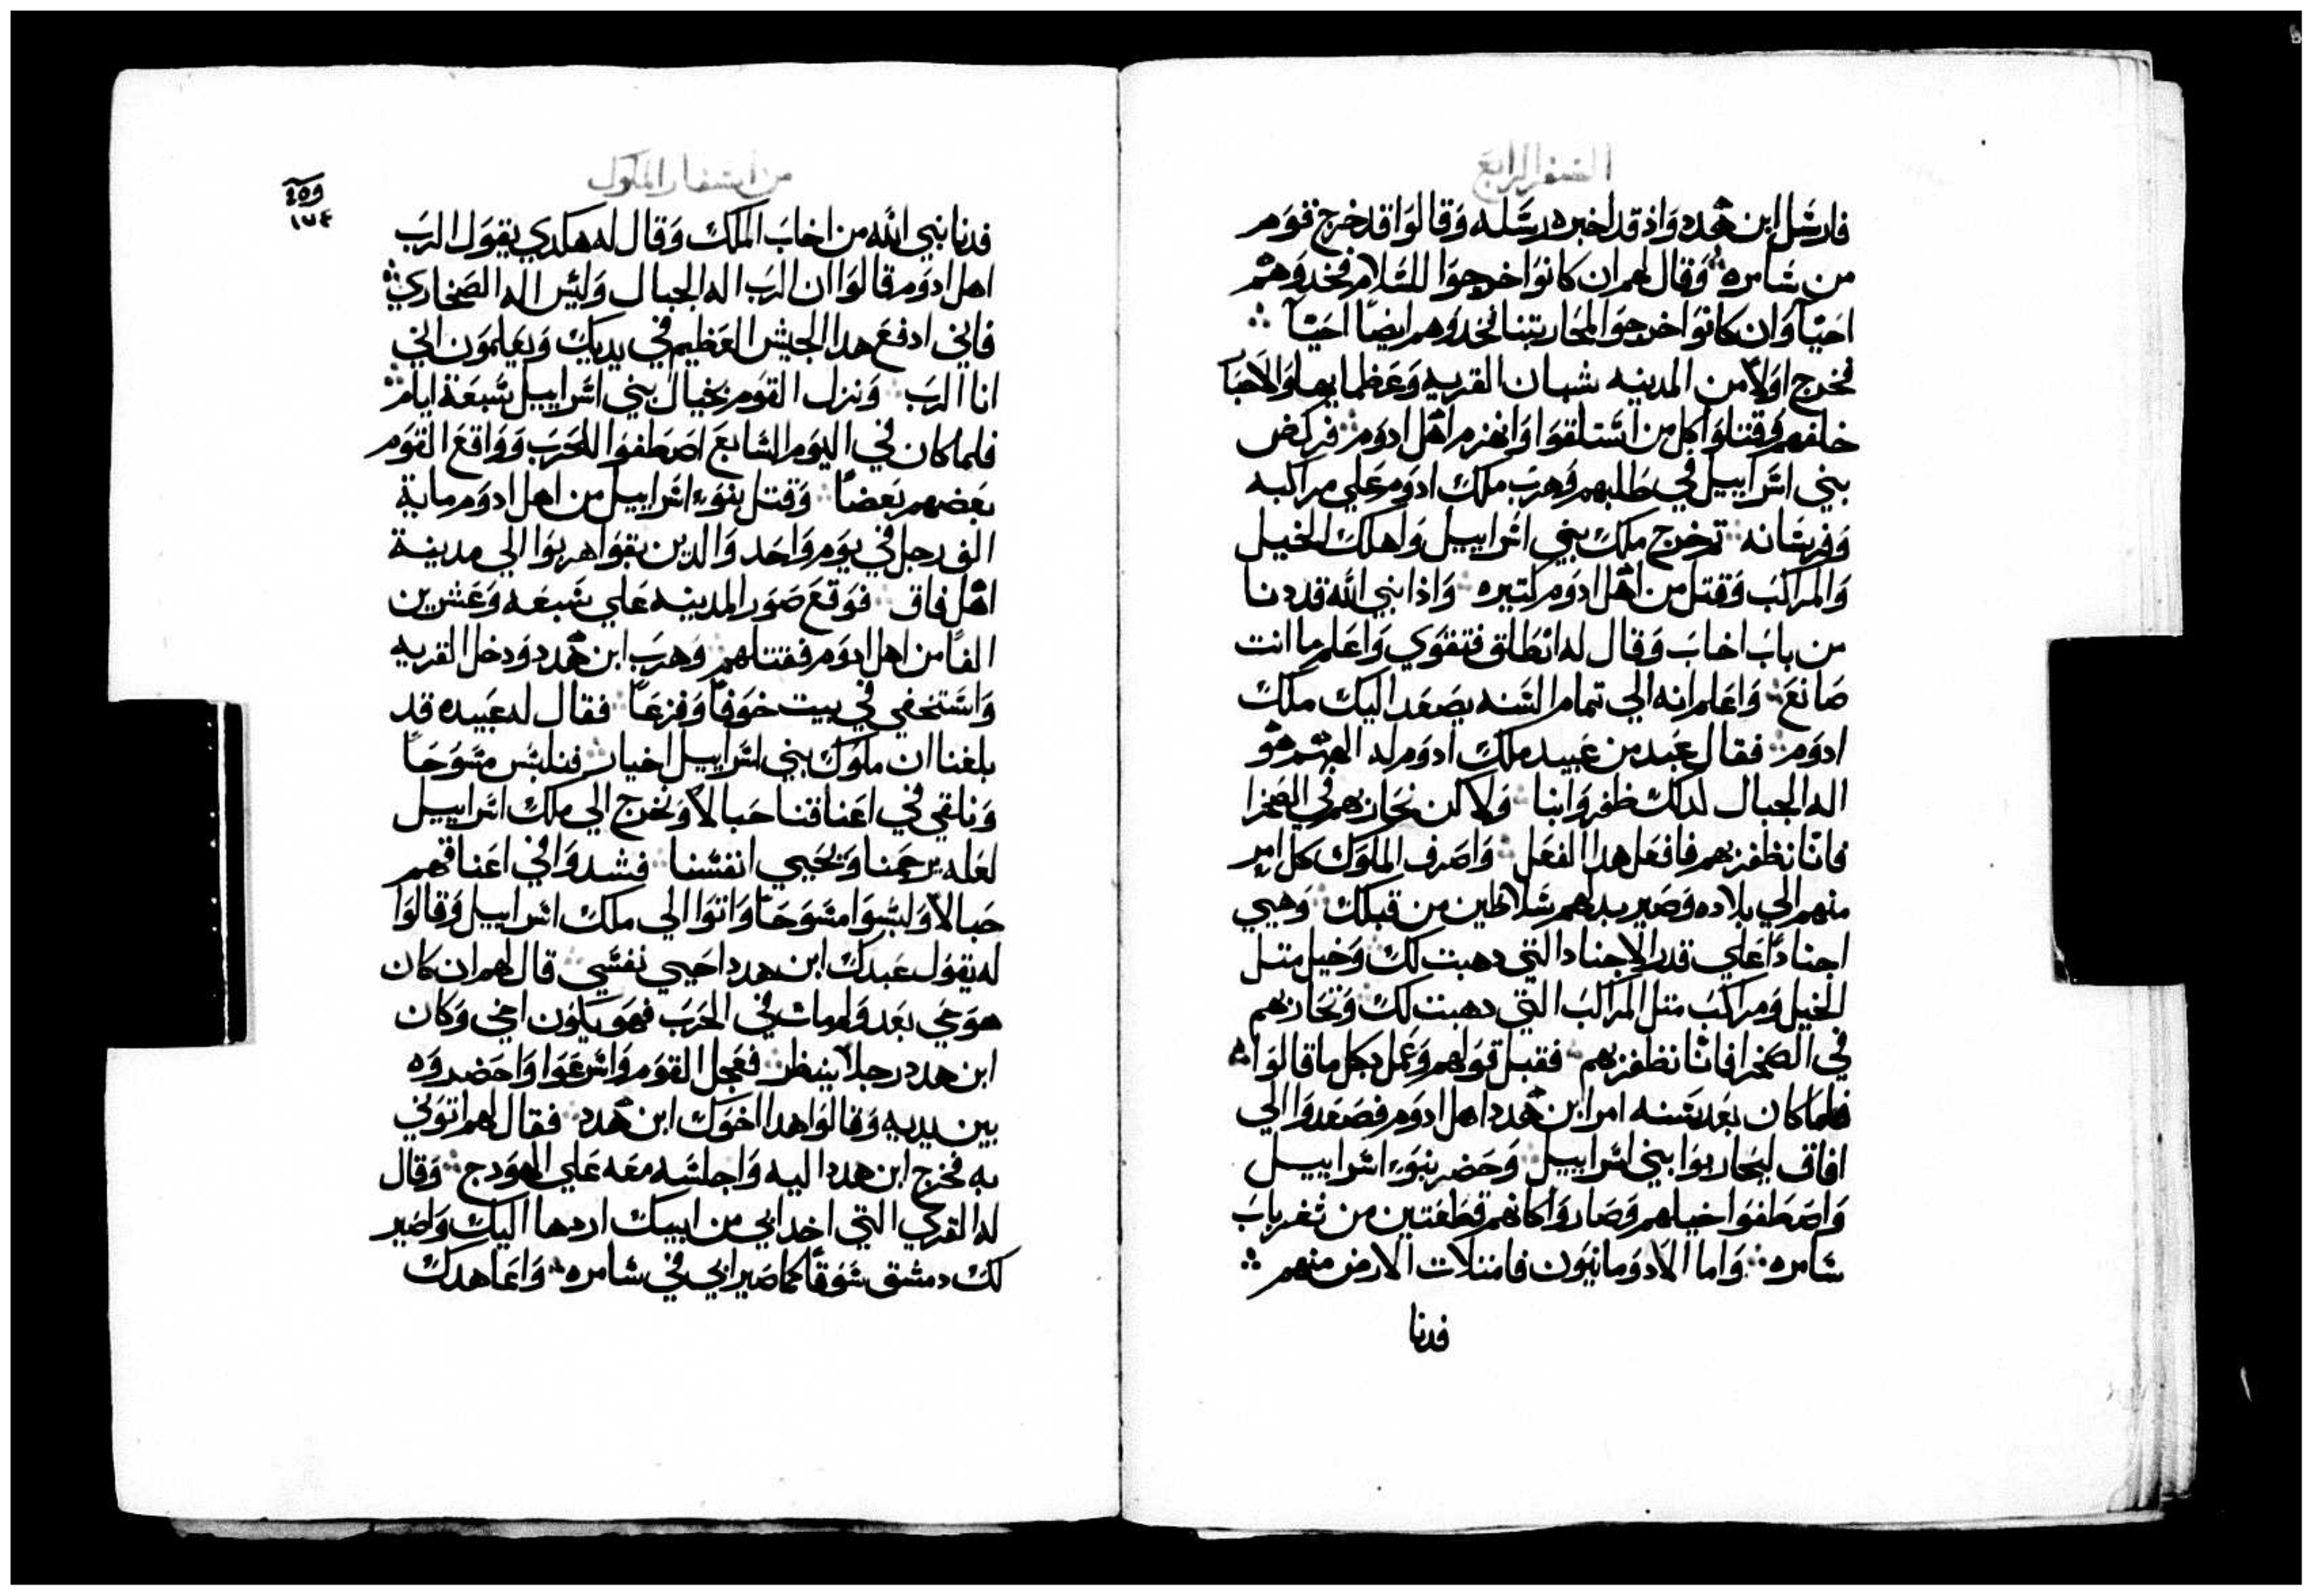 السفر الرابع
فارسل ابن هدد واذ قد اخبره رسله وقالوا قد خرج قوم
من سامره وقال لهم ان كانوا خرجوا للسلام فخدوهم
احيآ وان كانوا خرجوا لمحاربتنا فخدوهم ايضا احيآ
فخرج اولا من المدينه شبان القريه وعظمايها والاجنا
خلفهم وقتلوا كل من استلقوا وانهزم اهل ادوم فركض
بني اسراييل في طلبهم وهرب ملك ادوم علي مراكبه
وفرسانه تم خرج ملك بني اسراييل واهلك الخيل
والمراكب وقتل من اهل ادوم كتيره واذا نبي الله قد دنا
من باب اخاب وقال له انطلق فتقوي واعلم ما انت
صانع واعلم انه الي تمام السنه يصعد اليك ملك
ادوم فقال عبد من عبيد ملك ادوم له الههم هو
اله الجبال لدلك ظفروا بنا ولاكن نحاربهم في الصخرا
فاننا نظفر بهم فافعل هدا الفعل واصرف الملوك كل امر
منهم الي بلاده وصير بدلهم سلاطين من قبلك وهيي
اجنادا علي قدر الاجناد التي دهبت لك وخيل متل
الخيل ومراكب متل المراكب التي دهبت لك ونحاربهم
في الصخرا فاننا نظفر بهم فقبل قولهم وعمل بكل ما قالوا
فلما كان بعد سنه امر ابن هدد اهل ادوم فصعدوا الي
افاق ليحاربوا بني اسراييل وحضر بنوا اسراييل
واصطفوا خيلهم وصاروا كانهم قطعتين من تغر باب
سامره واما الادومانيون فامتلات الارض منهم
فدنا
من اسفار الملوك
٤٥٩
١٧٤
فدنا نبي الله من اخاب الملك وقال له هكدي يقول الرب
اهل ادوم قالوا ان الرب اله الجبال وليس اله الصخاري
فاني ادفع هدا الجيش العظيم في يديك ويعلمون اني
انا الرب ونزل القوم بخيال بني اسراييل سبعة ايام
فلما كان في اليوم السابع اصطفوا للحرب وواقع القوم
بعضهم بعضا وقتل بنوا اسراييل من اهل ادوم ماية
الف رجل في يوم واحد والدين بقوا هربوا الي مدينة
اهل فاق فوقع صور المدينه علي سبعه وعشرين
الفا من اهل ادوم فقتلهم وهرب ابن هدد ودخل القريه
واستخفي في بيت خوفا وفزعا فقال له عبيده قد
بلغنا ان ملوك بني اسراييل اخيار فنلبس مسوحا
ونلقي في اعناقنا حبالا ونخرج الي ملك اسراييل
لعله يرحمنا ويحيي انفسنا فشدوا في اعناقهم
حبالا ولبسوا مسوحا واتوا الي ملك اسراييل وقالوا
له يقول عبدك ابن هدد احيي نفسي قال لهم ان كان
هو حي بعد ولم مات في الحرب فهو يكون اخي وكان
ابن هدد رجلا ينيظر فعجل القوم واسرعوا واحضروه
بين يديه وقالوا هدا اخوك ابن هدد فقال لهم اتوني
به فخرج ابن هدد اليه واجلسه معه علي الهودج وقال
له القري التي اخد ابي من ابيك اردها اليك واصير
لك دمشق سوقا كما صير ابي في سامره واعاهدك